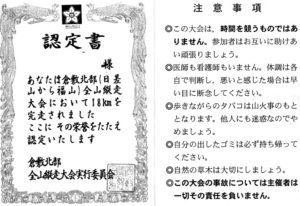 認定書
様
あなたは倉敷北部(日差
山から福山)全山縦走
大会において18kmを
完走されました
ここに その栄誉をたたえ
認定します
倉敷北部
全山縦走大会実行委員会
注意事項
◎この大会は、時間を競うものではあ
りません。参加者はお互いに助けあ
い頑張りましょう。
◎医師も看護師もいません。体調は各
自で判断し、悪いと感じた場合は早
い目に断念してください。
◎歩きながらのタバコは山火事のもと
となります。他人にも迷惑なのでや
めましょう。
◎自分の出したゴミは必ず持ち帰って
ください。
◎自然の草木は大切にしましょう。
◎この大会の事故については主催者は
一切その責任を負いません。